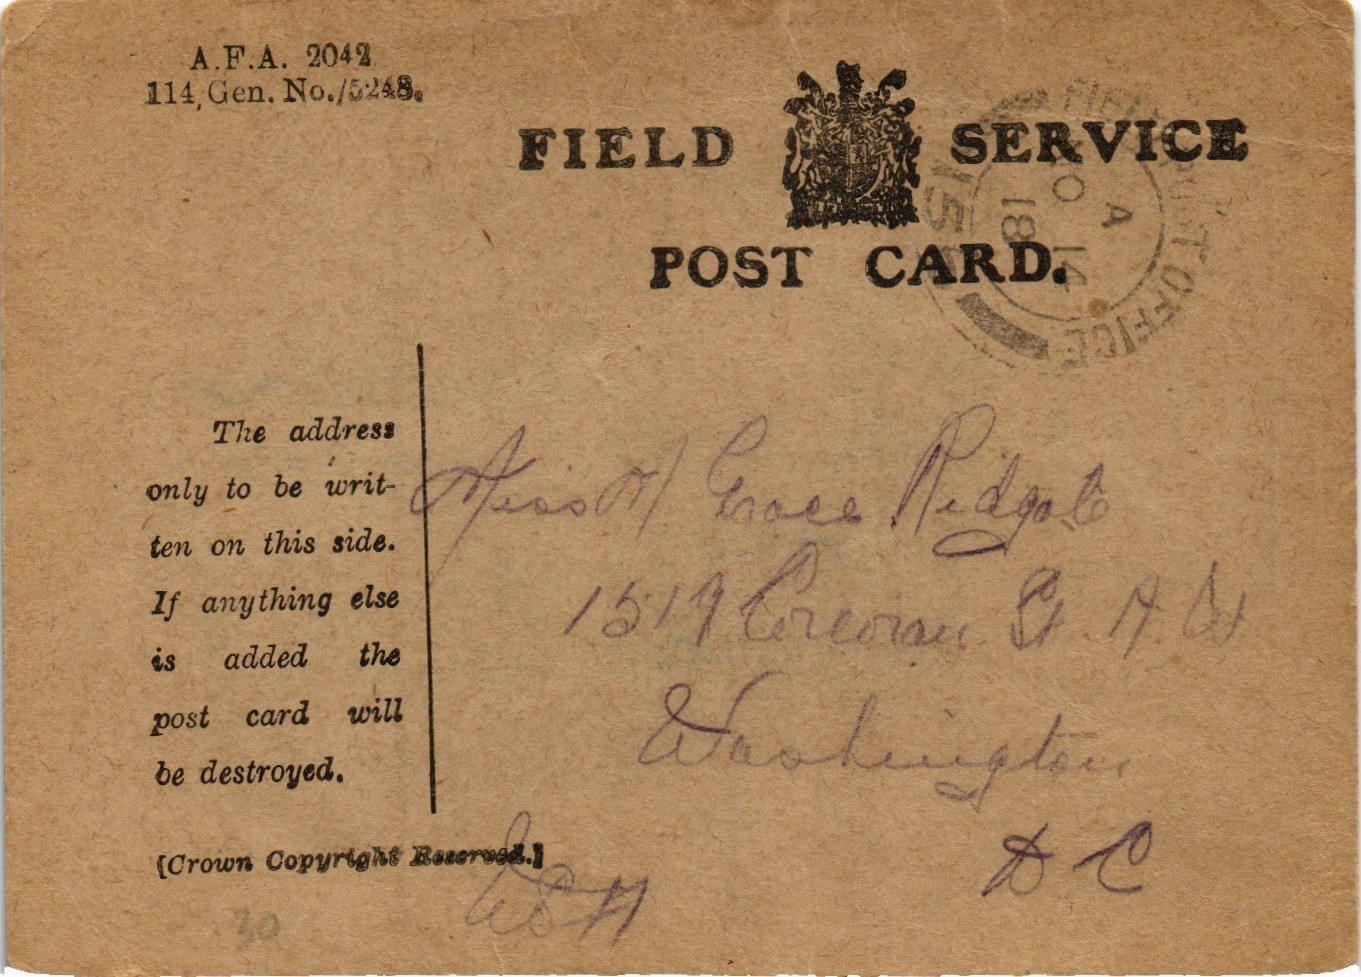 A.F.A. 2042
114, Gen. No./5248.
FIELD SERVICE
POST CARD.
FIELD POST OFFICE
A
14
18
The address
only to be writ-
ten on this side.
If anything else
is added the
post card will
be destroyed.
[Crown Copyright Reserved.]
Miss M Grace Ridgate
1519 Corcoran St. N. W
Washington
D C
30